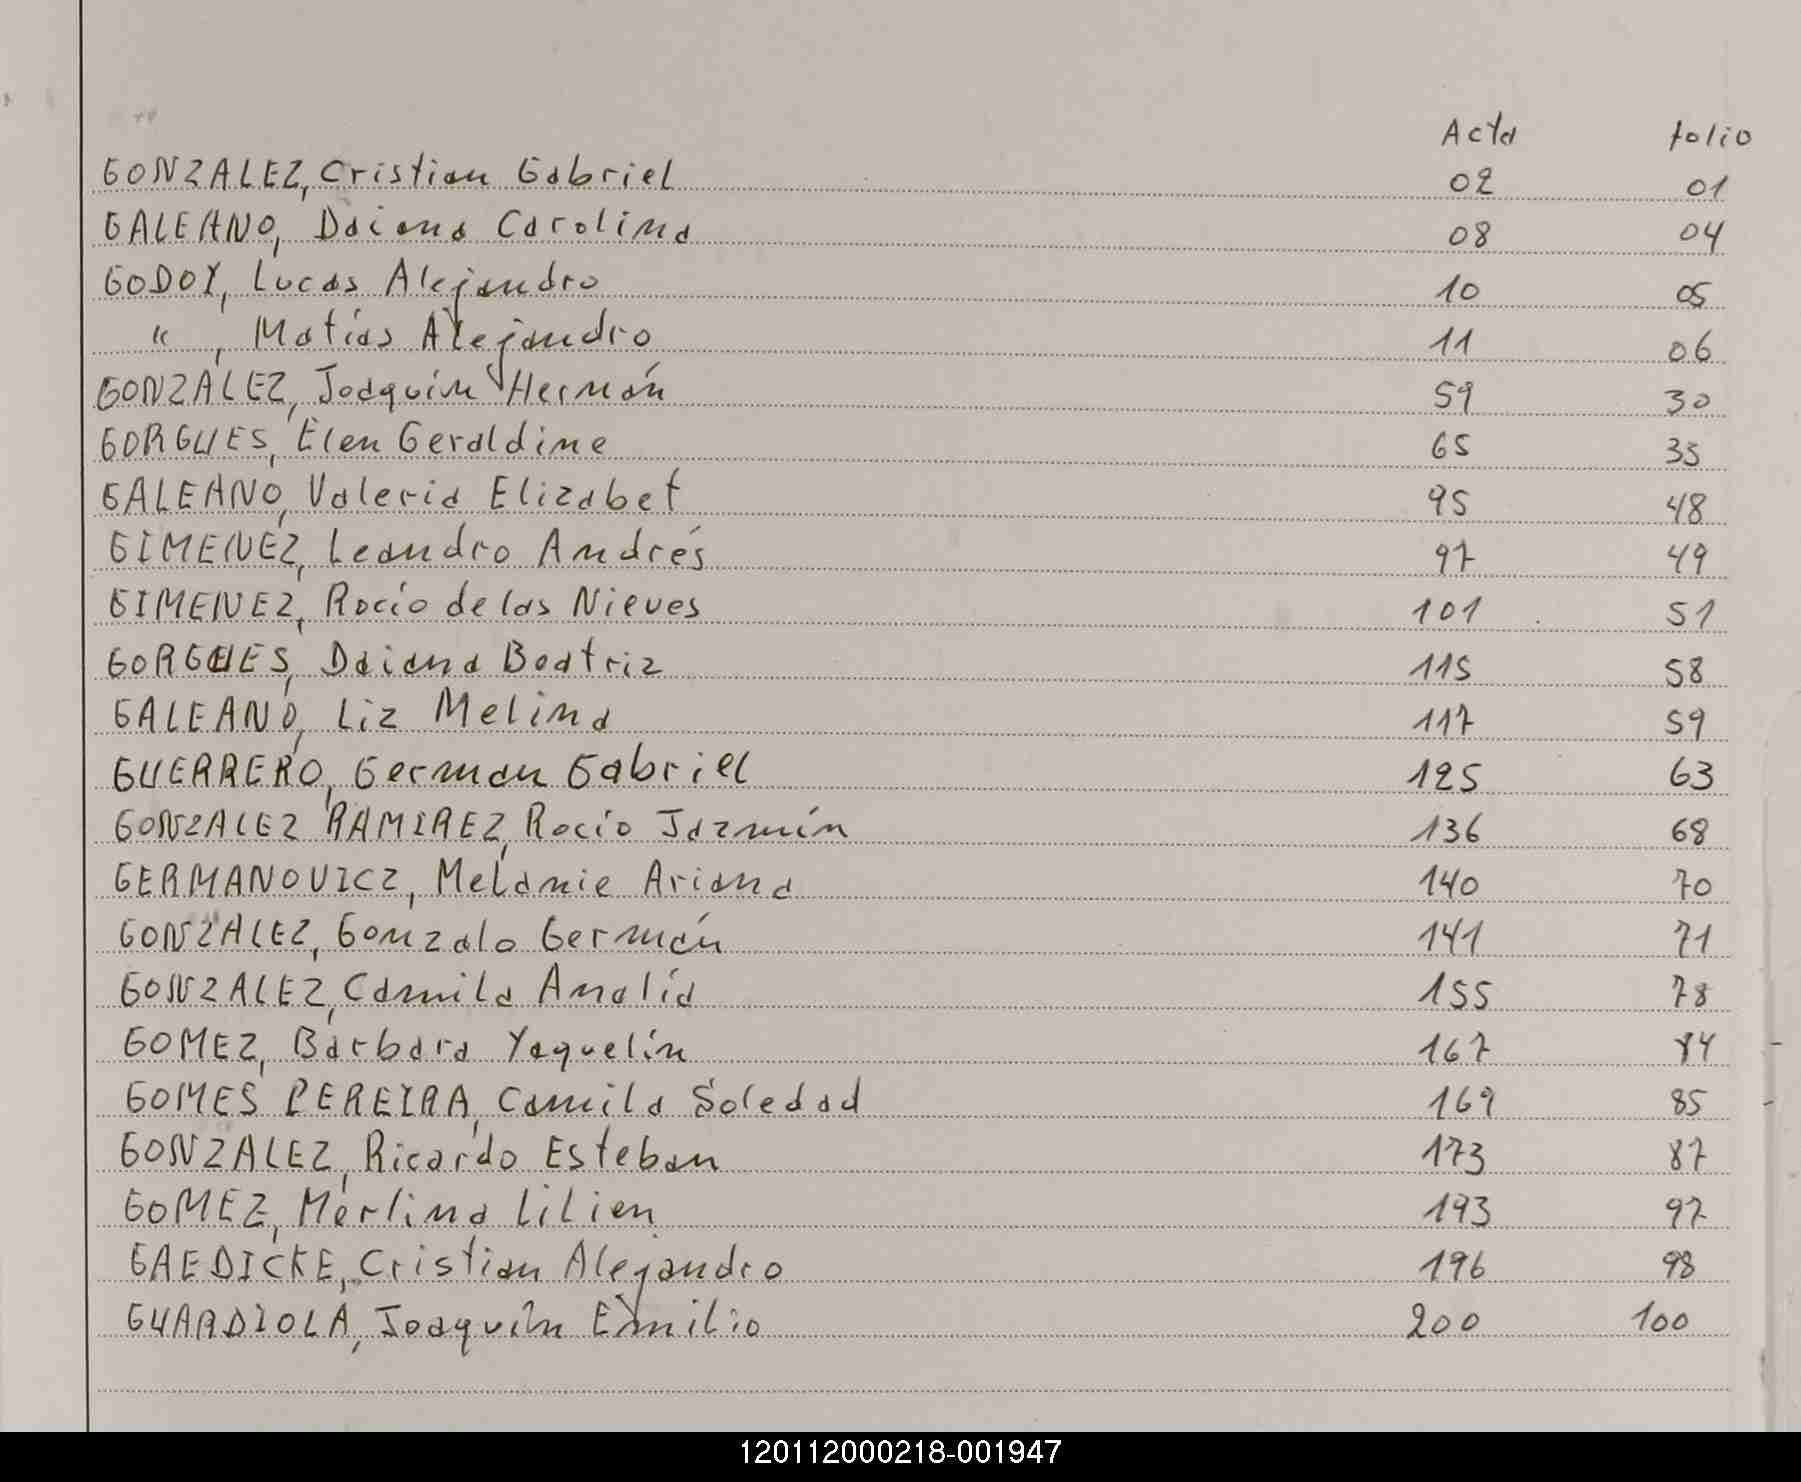 Acta folio
GONZALEZ, Cristian Gabriel 02 01
GALEANO, Daiana Carolina 08 04
GODOY, Lucas Alejandro 10 05
" , Matías Alejandro 11 06
GONZALEZ, Joaquín Hernán 59 30
GORGUES, Elen Geraldine 65 33
GALEANO, Valeria Elizabet 95 48
GIMENEZ, Leandro Andrés 97 49
GIMENEZ, Rocío de las Nieves 101 51
GORGUES, Daiana Beatriz 115 58
GALEANO, Liz Melina 117 59
GUERRERO, German Gabriel 125 63
GONZALEZ RAMIREZ, Rocío Jazmín 136 68
GERMANOVICZ, Melanie Ariana 140 70
GONZALEZ, Gonzalo Germán 141 71
GONZALEZ, Camila Analía 155 78
GOMEZ, Bárbara Yaquelín 167 84
GOMES PEREIRA, Camila Soledad 169 85
GONZALEZ, Ricardo Esteban 173 87
GOMEZ, Merlina Lilien 193 97
GAEDICKE, Cristian Alejandro 196 98
GUARDIOLA, Joaquín Emilio 200 100
120112000218-001947